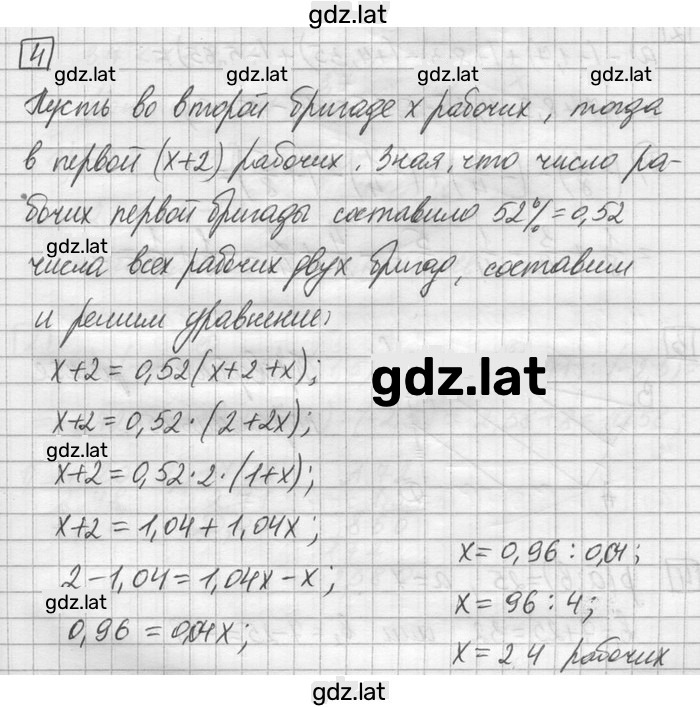 gdz.lat
4
gdz.lat gdz.lat gdz.lat gdz.lat
Пусть во второй бригаде x рабочих, тогда
в первой (x+2) рабочих. Зная, что число ра-
бочих первой бригады составило 52% = 0,52
gdz.lat
числа всех рабочих двух бригад, составим
и решим уравнение:
x+2 = 0,52(x+2+x);
gdz.lat
x+2 = 0,52·(2+2x);
gdz.lat
x+2 = 0,52·2·(1+x);
x+2 = 1,04+1,04x;
2-1,04 = 1,04x-x;
gdz.lat
0,96 = 0,04x;
x = 0,96 : 0,04;
x = 96 : 4;
x = 24 рабочих
gdz.lat